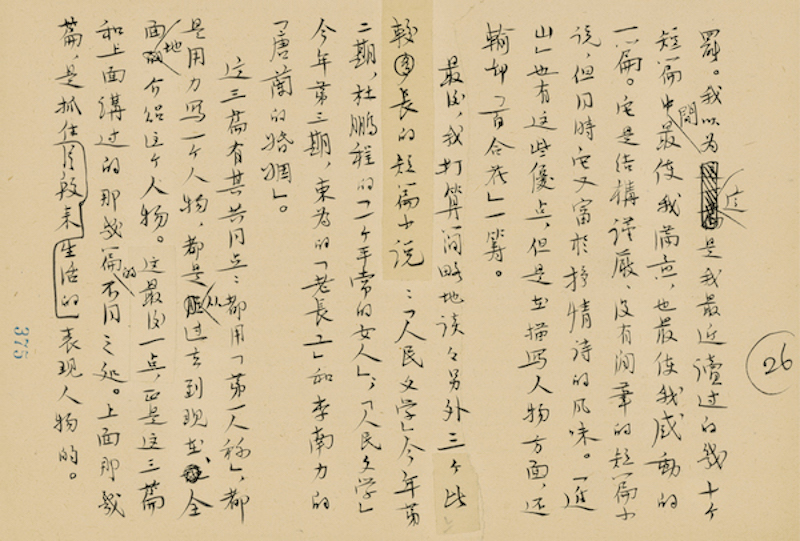 罢。我以为这是我最近讀过的幾十个
短篇中間最使我滿意,也最使我感動的
一篇。它是结構謹嚴、没有闲筆的短篇小
说,但同時它又富於抒情詩的风味。「進
山」也有这些優点,但是在描写人物方面,还
输却「百合花」一筹。
最後,我打算简略地談々另外三个比
較長的短篇小说:「人民文学」今年第
二期,杜鵬程的「一个平常的女人」;「人民文学」
今年第三期,東为的「老長工」和李南力的
「唐蘭的婚姻」。
这三篇有其共同点:都用「第一人称」,都
是用力写一个人物,都是从过去到现在、全
面地介绍这个人物。这最後一点,正是这三篇
和上面講过的那幾篇的不同之処。上面那幾
篇,是抓住片段来生活的表现人物的。
26
375